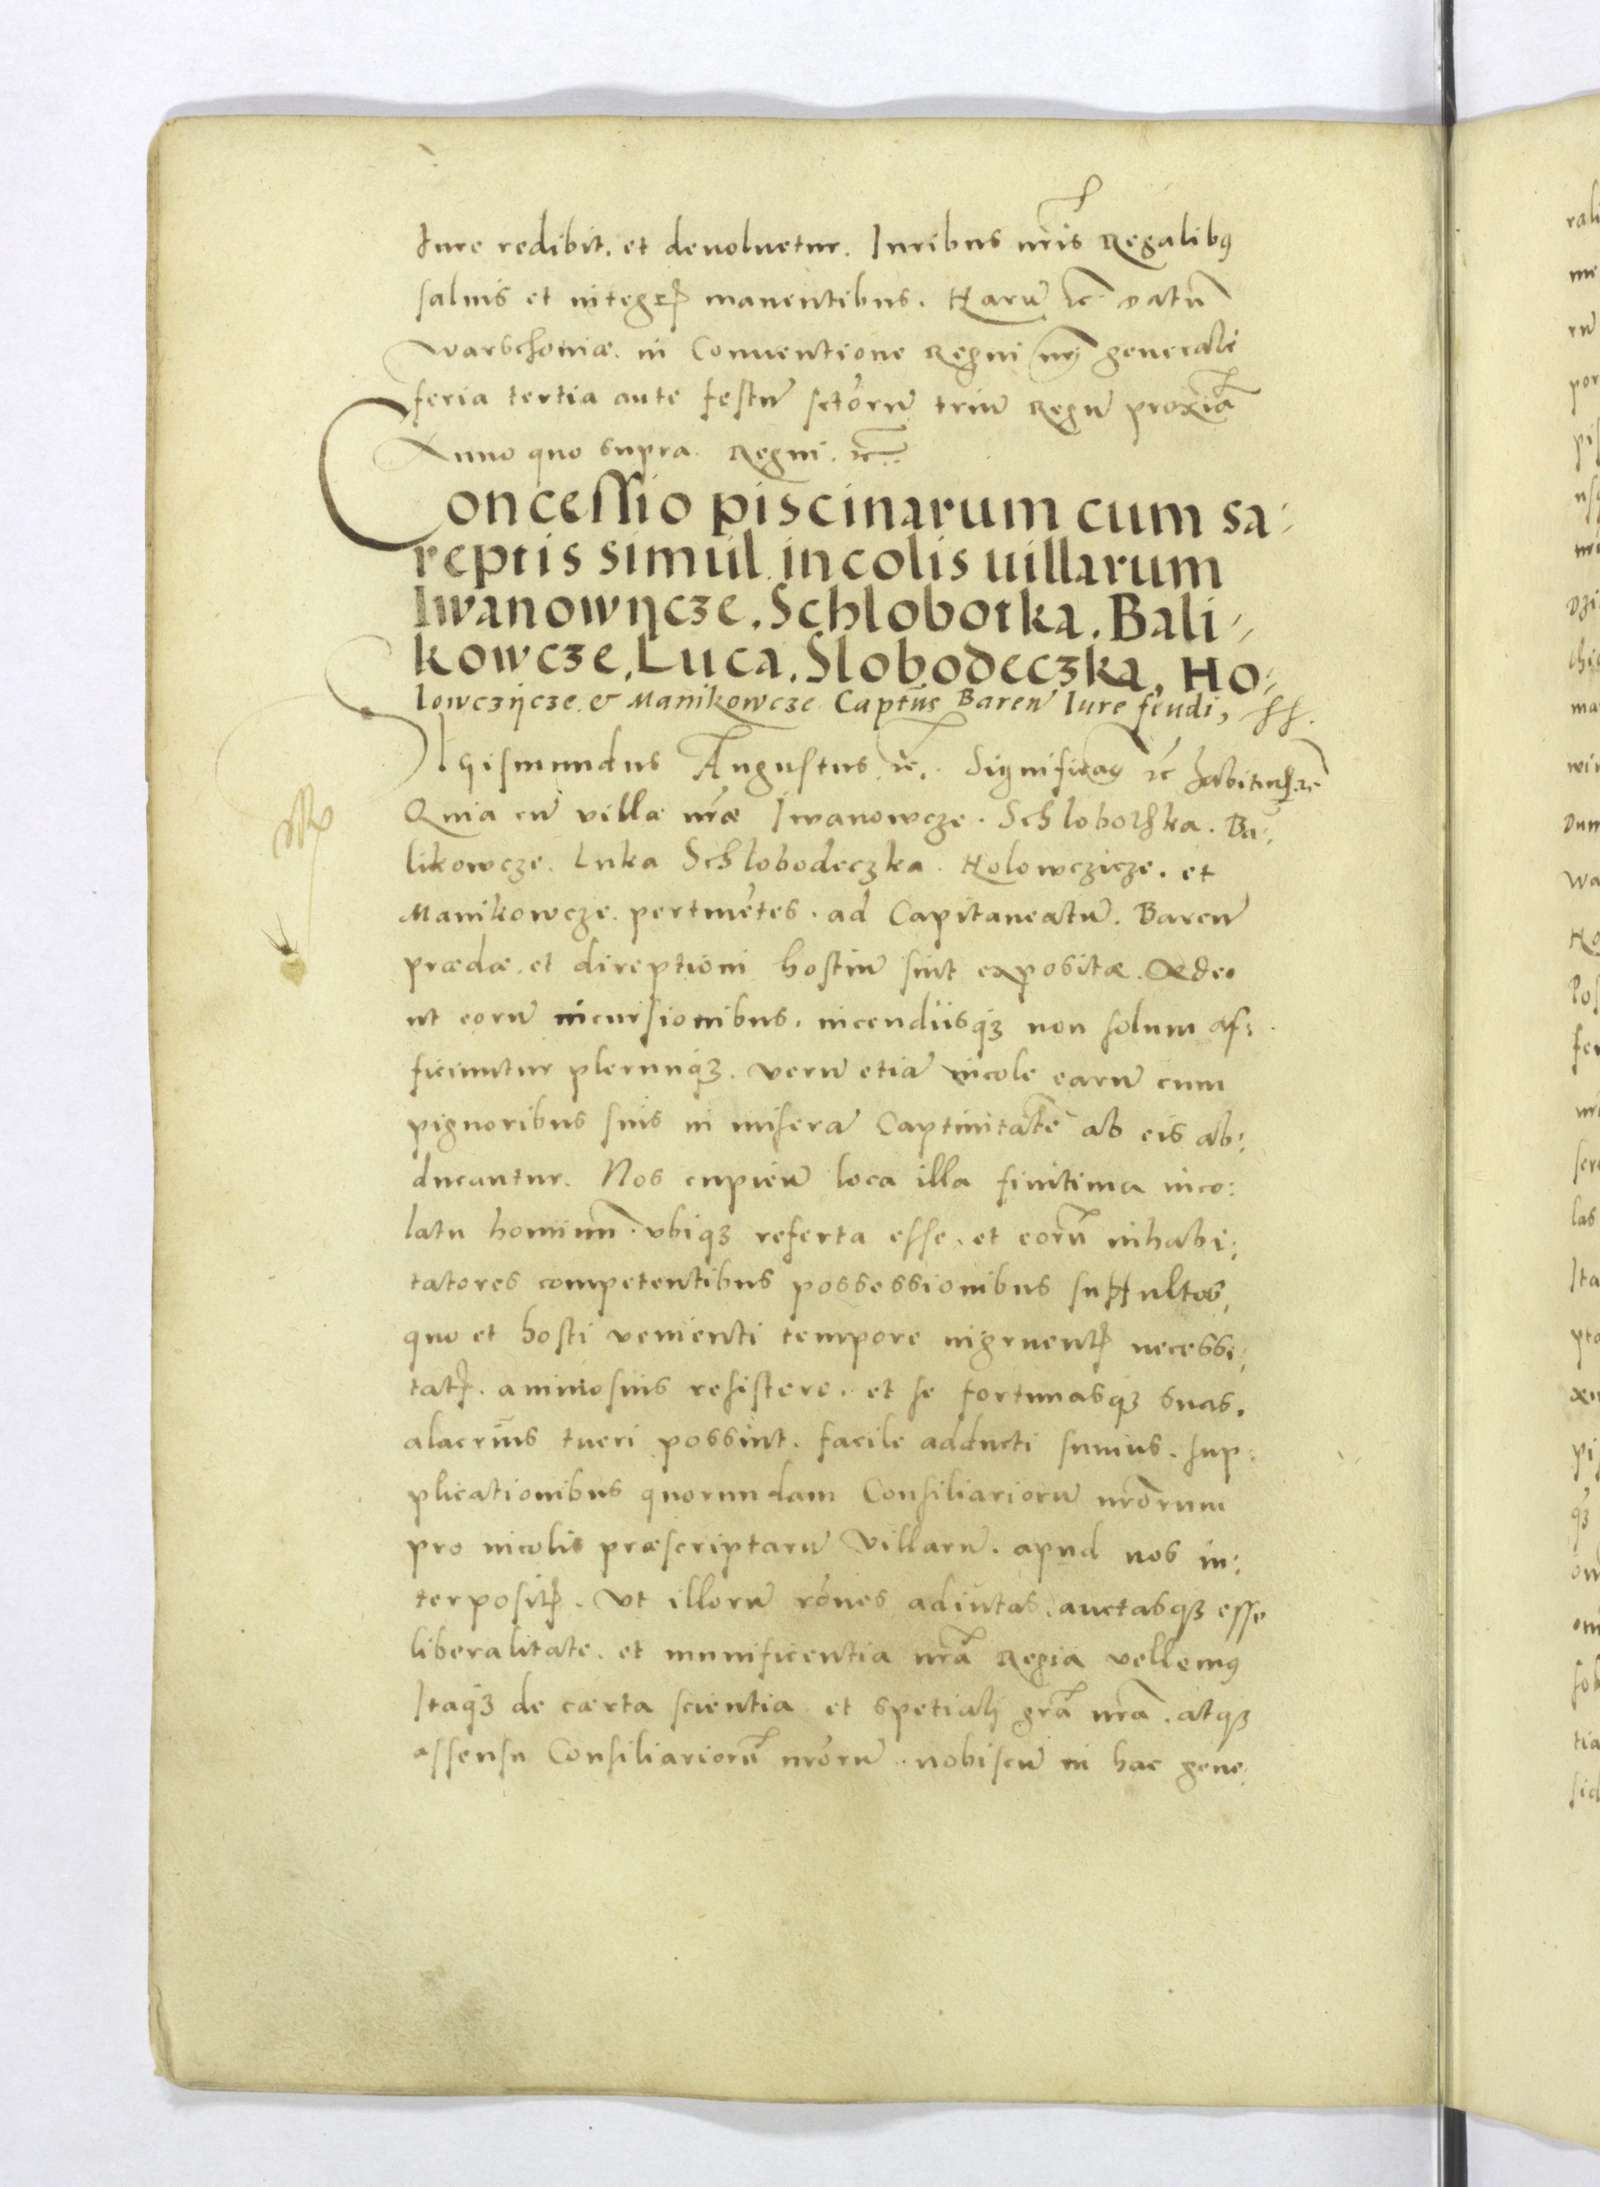 Iure redibit. et deuoluetur. Iuribus nrīs Regalibꝯ
saluis et integrꝭ manentibus. Harū ꝛc̄ datū
warschoniæ. in Conuentione Regni nrj̄ generali
feria tertia ante festū sctōrū triū Regū proxiā
Anno quo supra. Regni. ꝛc̄
Concessio piscinarum cum sa-
reptis simul incolis uillarum
Iwanowijcze. Schlobotka. Bali-
kowcze. Luca. Slobodeczka. Ho-
lowczijcze & Manikowcze Captūs Baren̄ Iure feudi,
Sigismundus Augustus ꝛc̄. Significaꝯ ꝛc̄
Quia cū villæ nrǣ Iwanowcze. Schlobothka. Ba:
likowcze. Luka Schlobodeczka. Holowczicze. et
Manikowcze. pertinētes. ad Capitaneatū. Baren̄
prædæ. et direptioni hostiū sint expositæ. Adeo
ut eorū incursionibus. incendiisqꝫ non solum af:
ficiuntur plerunqꝫ. verū etiā incole earū cum
pignoribus suis in miserā Captiuitatē ab eis ab:
ducantur. Nos cupien̄ loca illa finitima inco:
latu hominū. vbiqꝫ referta esse. et eorū inhabi:
tatores competentibus possessionibus suffultos,
quo et hosti venienti tempore ingruentꝭ necessi:
tatꝭ. animosius resistere. et se fortunasqꝫ suas.
alacrius tueri possint. facile adducti sumus. sup:
plicationibus quorundam Consiliariorū nrōrum
pro incolis præscriptarū villarū. apud nos in:
terpositꝭ. Vt illorū rōnes adiutas. auctasqꝫ esse
liberalitate. et munificentia nrā Regia vellemꝯ
Itaqꝫ de cærta scientia et spetiali grā nrā. atqꝫ
assensu Consiliariorū nrōrū. nobiscū in hac gene: